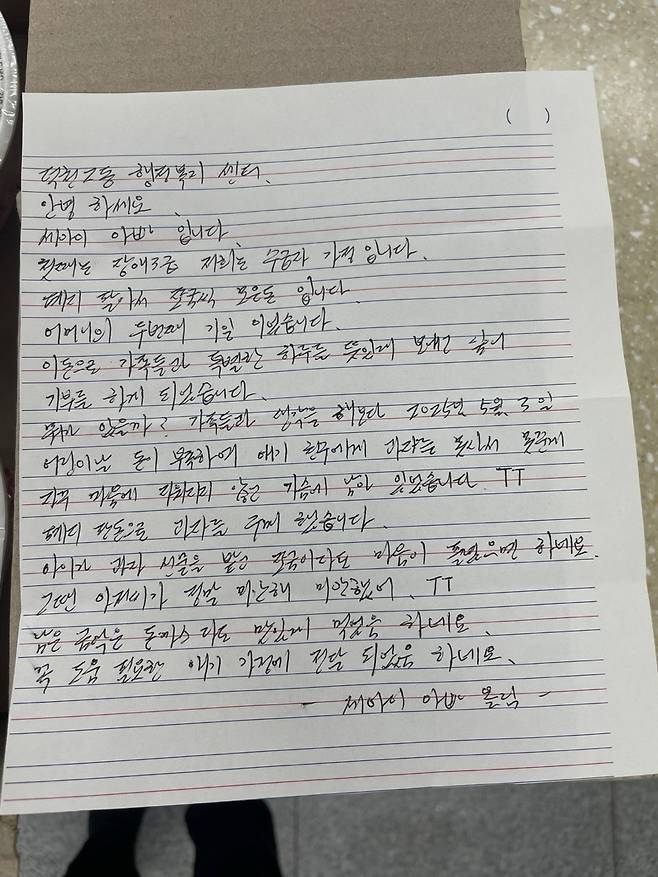 (    )
덕천2동 행정복지 센터.
안녕 하세요.
세아이 아빠 입니다.
첫째는 장애3급 저희는 수급자 가정 입니다.
폐지 팔아서 조금씩 모은돈 입니다.
어머니의 두번째 기일 이었습니다.
이돈으로 가족들과 특별한 하루를 뜻있게 보내고 싶어
기부를 하게 되었습니다.
뭐가 있을까? 가족들과 생각을 해보다 2025년 5월 5일
어린이날 돈이 부족하여 애기 한무에게 과자를 못사서 못준게
자꾸 마음에 지워지지 않고 가슴에 남아 있었습니다. TT
폐지 판돈으로 과자를 구매 했습니다.
아이가 과자 선물을 받고 조금이라도 마음이 풀렸으면 하네요.
그땐 아저씨가 정말 미안해 미안했어. TT
남은 금액은 돈까스라도 맛있게 먹었음 하네요.
꼭 도움 필요한 애기 가정에 전달 되었음 하네요.
- 세아이 아빠 올림 -